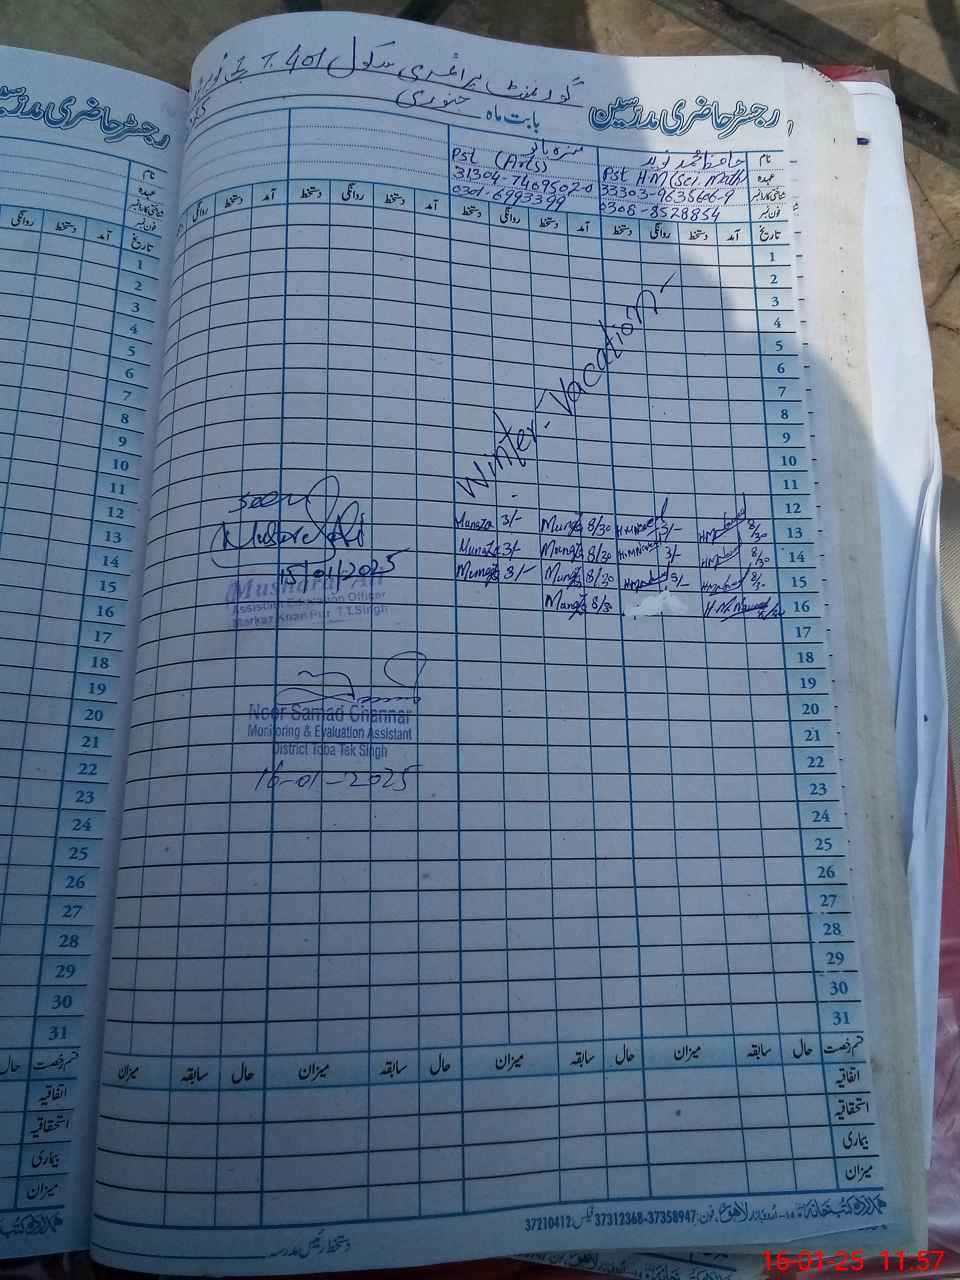 گورنمنٹ پرائمری سکول 401
رجسٹر حاضری مدرسین
بابت ماہ جنوری
نام
عہدہ Pst H.M (Sci Math Pst (Arts)
شناختی کارڈ نمبر 33303-9638606-9 31304-7409502-0
فون نمبر 0308-8528854 0301-6993399
تاریخ آمد دستخط روانگی دستخط آمد دستخط روانگی دستخط آمد دستخط روانگی دستخط
1
2
3
4
5
6
7
8
9
10
11
Winter-Vacation-
12
13 8/30 3/- 8/30 3/-
14 8/30 3/- 8/30 3/-
15 8/30 3/- 8/30 3/-
16 8/30
17
18
19
20
21
22
23
24
25
26
27
28
29
30
31
seen
15/01/2025
Musharaf Ali
Assistant Education Officer
Markaz Khan Pur T.T.Singh
Noor Samad Channar
Monitoring & Evaluation Assistant
District Toba Tek Singh
16-01-2025
قسم رخصت حال سابقہ میزان حال سابقہ میزان حال سابقہ میزان
اتفاقیہ
استحقاقیہ
بیماری
میزان
37210412 فیکس: 37312368-37358947 فون: لاہور اردو بازار
دستخط رئیس مدرسہ
رجسٹر حاضری مدرسین
نام
عہدہ
شناختی کارڈ نمبر
فون نمبر
تاریخ آمد دستخط روانگی
1
2
3
4
5
6
7
8
9
10
11
12
13
14
15
16
17
18
19
20
21
22
23
24
25
26
27
28
29
30
31
قسم رخصت حال
اتفاقیہ
استحقاقیہ
بیماری
میزان
16-01-25 11:57